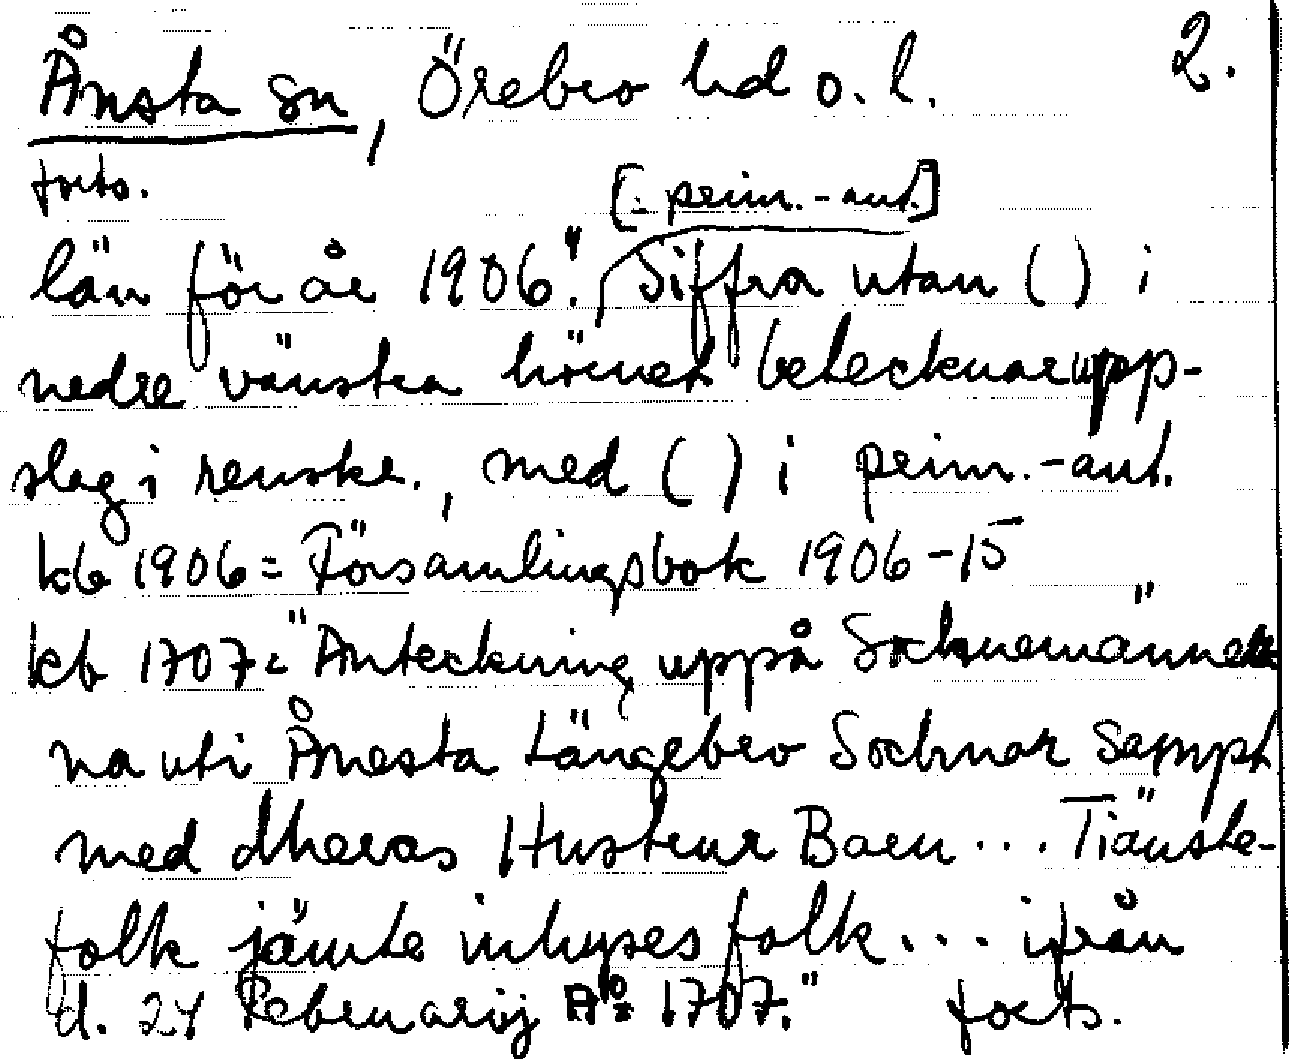 Ånsta sn, Örebro hd o. l. 2.
forts.
[: prim.-ant.]
län för år 1906." Siffra utan ( ) i
nedre vänstra hörnet betecknar upp-
slag i renskr., med ( ) i prim.-ant.
kb 1906 = Församlingsbok 1906-15
kb 1707 = "Anteckning uppå Sochnemänner
na uti Ånesta Längebro Sochnar Sampt
med dheras Hustrur Barn ... Tiänste-
folk jämte inhyses folk ... ifrån
d. 24 Februarij A:o 1707." forts.